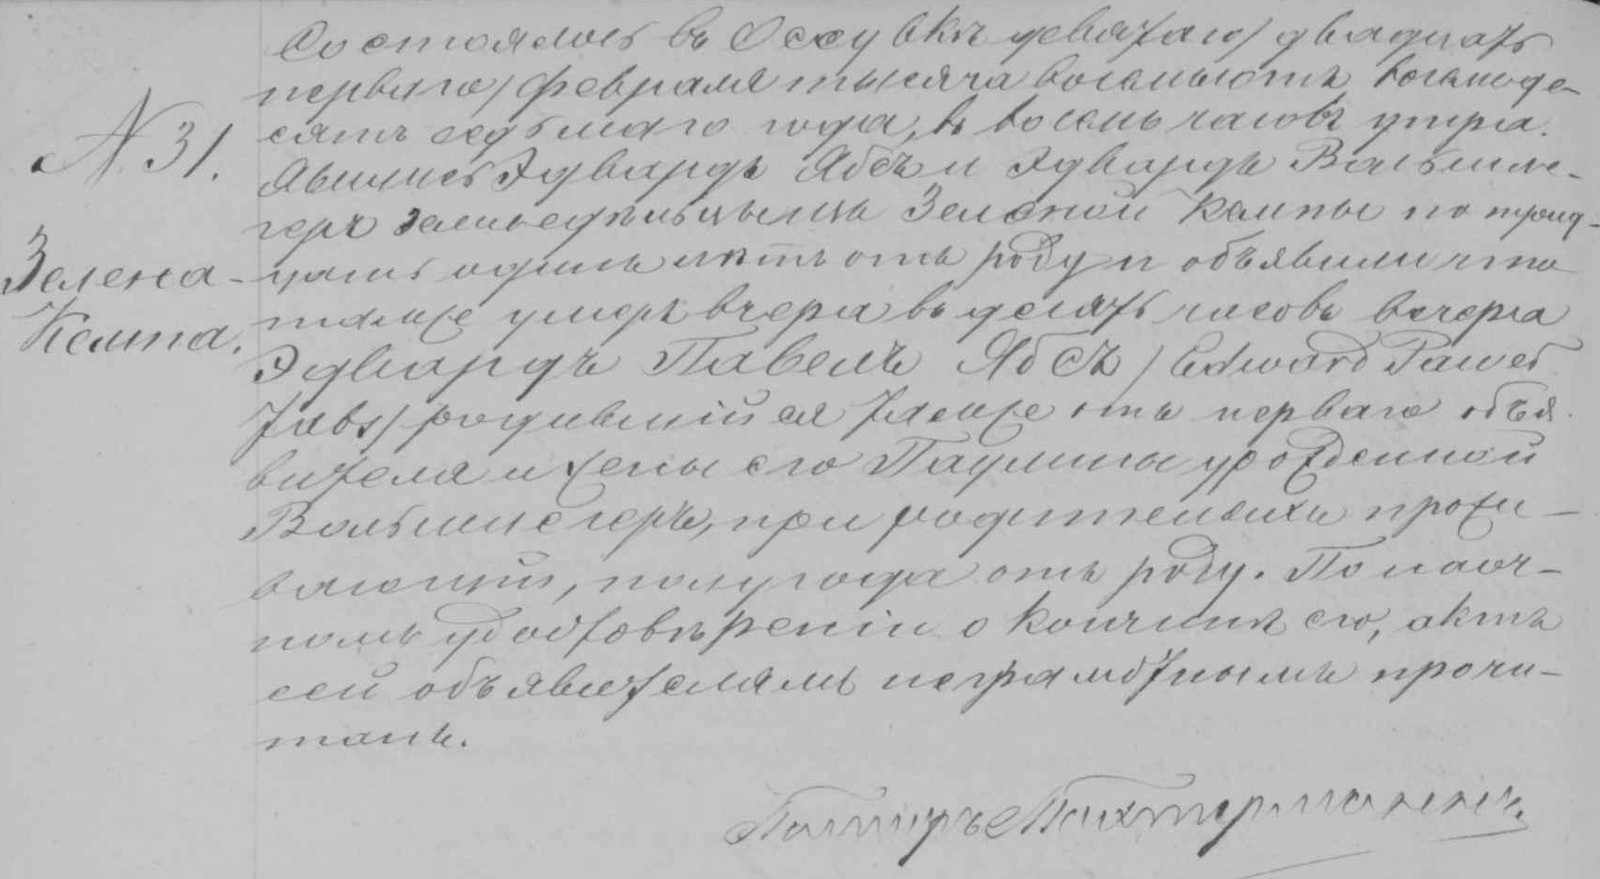 Состоялось въ Оссувкѣ девятаго/двадцать
перваго/февраля тысяча восемьсотъ восемьде-
сятъ седьмаго года, въ восемь часовъ утра.
№ 31.
Явились Эдвардъ Ябсъ и Эдвардъ Вольшле-
геръ земледѣльцы изъ Зеленой Кемпы по трид-
Зелена
цать одинъ лѣтъ отъ роду и объявили что
Кемпа.
тамже умеръ вчера въ десять часовъ вечера
Эдвардъ Павелъ Ябсъ /Edward Paweł
Jabs/ родившійся тамже отъ перваго объя-
вителя и жены его Паулины урожденной
Вольшлегеръ, при родителяхъ прожи-
вающій, полугода отъ роду. По наоч-
номъ удостовѣреніи о кончинѣ его, актъ
сей объявителямъ неграмотнымъ прочи-
танъ.
Пасторъ